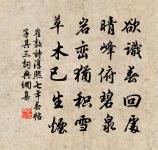 欲識春回處
晴峰俯碧泉
岩巒猶積雪
草木已生煙
崔敦詩淳熙七年春帖
子其三詞典網集